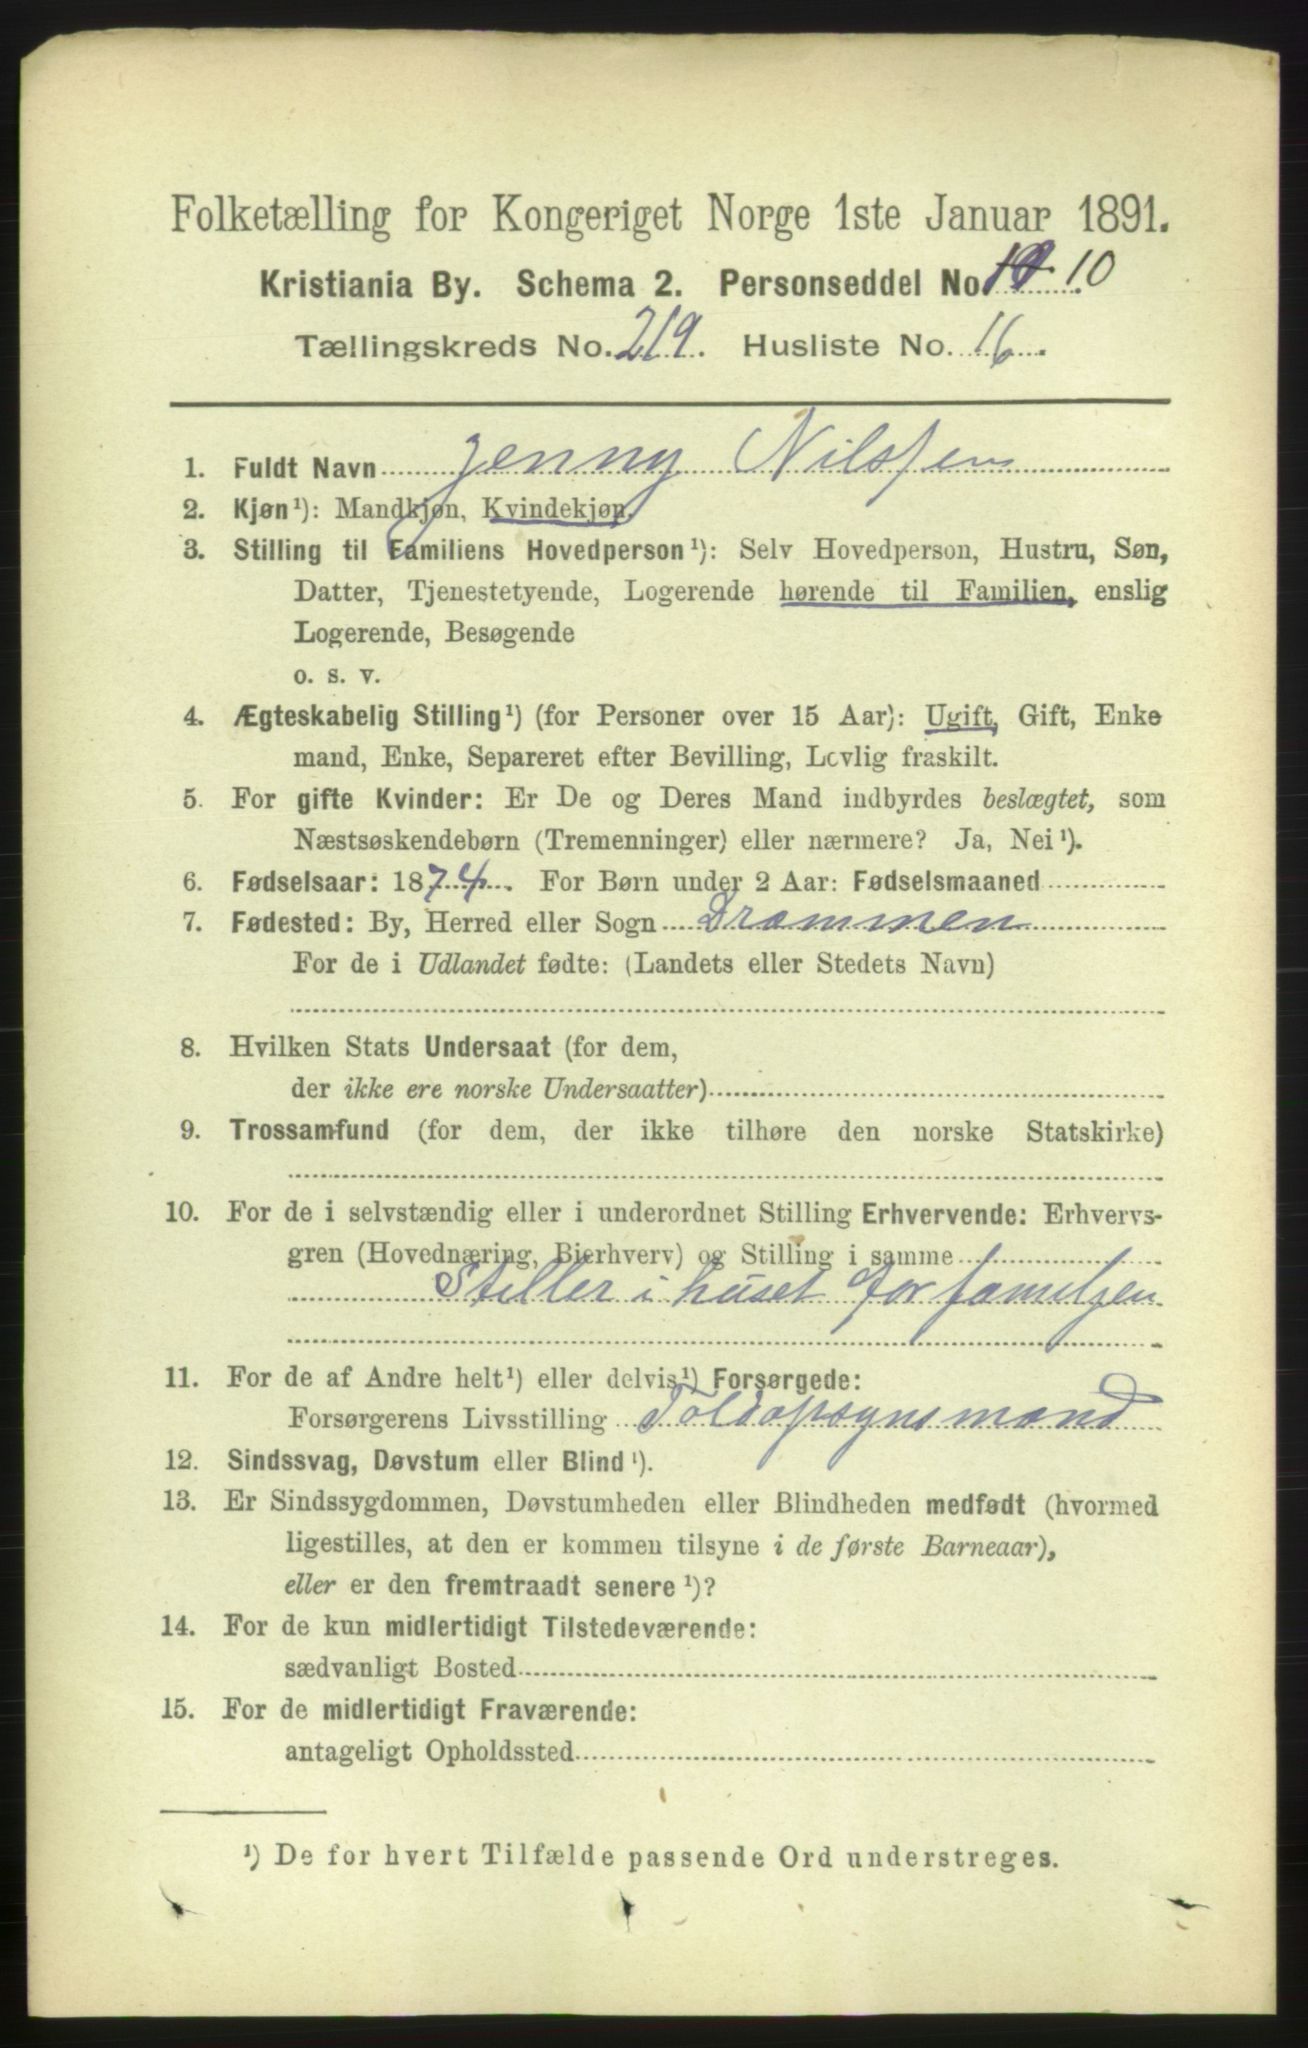 Folketælling for Kongeriget Norge 1ste Januar 1891.
Kristiania By. Schema 2. Personseddel No. 10
Tællingskreds No. 219. Husliste No. 16.
1. Fuldt Navn Jenny Nilssen
2. Kjøn¹): Mandkjøn, Kvindekjøn.
3. Stilling til Familiens Hovedperson¹): Selv Hovedperson, Hustru, Søn,
Datter, Tjenestetyende, Logerende hørende til Familien, enslig
Logerende, Besøgende
o. s. v.
4. Ægteskabelig Stilling¹) (for Personer over 15 Aar): Ugift, Gift, Enke
mand, Enke, Separeret efter Bevilling, Lovlig fraskilt.
5. For gifte Kvinder: Er De og Deres Mand indbyrdes beslægtet, som
Næstsøskendebørn (Tremenninger) eller nærmere? Ja, Nei¹).
6. Fødselsaar: 1874. For Børn under 2 Aar: Fødselsmaaned
7. Fødested: By, Herred eller Sogn Drammen
For de i Udlandet fødte: (Landets eller Stedets Navn)
8. Hvilken Stats Undersaat (for dem,
der ikke ere norske Undersaatter)
9. Trossamfund (for dem, der ikke tilhøre den norske Statskirke)
10. For de i selvstændig eller i underordnet Stilling Erhvervende: Erhvervs-
gren (Hovednæring, Bierhverv) og Stilling i samme
Steller i huset for familjen
11. For de af Andre helt¹) eller delvis¹) Forsørgede:
Forsørgerens Livsstilling Toldopsynsmand
12. Sindssvag, Døvstum eller Blind¹).
13. Er Sindssygdommen, Døvstumheden eller Blindheden medfødt (hvormed
ligestilles, at den er kommen tilsyne i de første Barneaar),
eller er den fremtraadt senere¹)?
14. For de kun midlertidigt Tilstedeværende:
sædvanligt Bosted
15. For de midlertidigt Fraværende:
antageligt Opholdssted
¹) De for hvert Tilfælde passende Ord understreges.